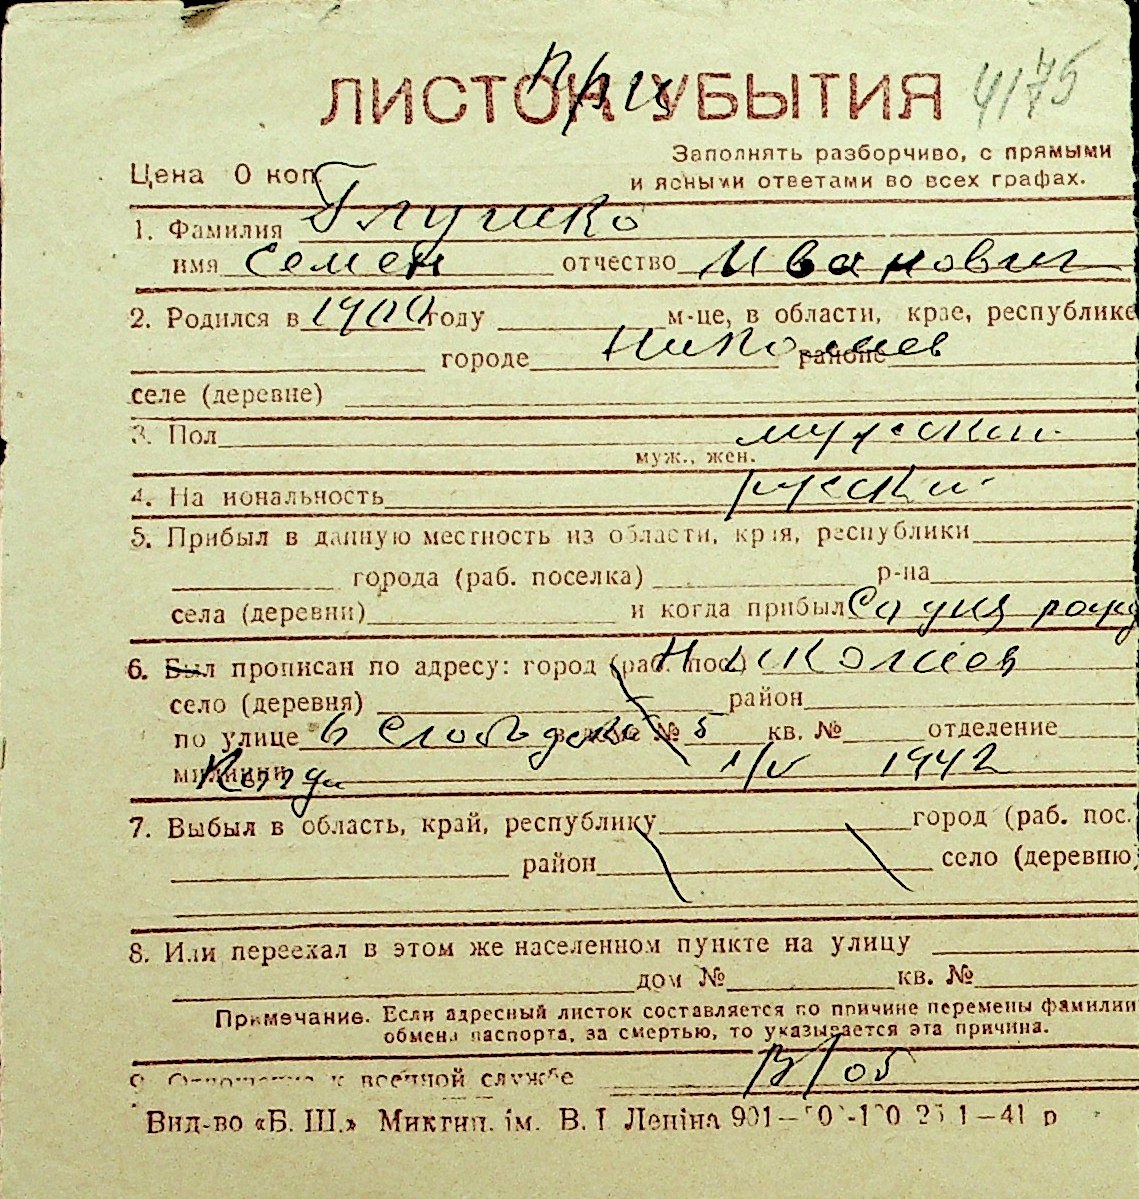 ЛИСТОК УБЫТИЯ
Заполнять разборчиво, с прямыми
Цена 0 коп.
и ясными ответами во всех графах.
1. Фамилия Глушко
имя Семен отчество Иванович
2. Родился в 1900 году м-це, в области, крае, республике
городе Николаев районе
селе (деревне)
3. Пол мужской
муж., жен.
4. На иональность русский
5. Прибыл в данную местность из области, края, республики
города (раб. поселка) р-на
села (деревни) и когда прибыл
6. Был прописан по адресу: город (раб. пос.) Николаев
село (деревня) район
по улице 6 Слободск дома № 5 кв. № отделение
милиции Когда 1/V 1942
7. Выбыл в область, край, республику город (раб. пос.
район село (деревню
8. Или переехал в этом же населенном пункте на улицу
дом № кв. №
Примечание. Если адресный листок составляется по причине перемены фамилии
обмена паспорта, за смертью, то указывается эта причина.
9. Отношение к военной службе В/об
Вид-во «Б. Ш.» Микгип. ім. В. І Леніна